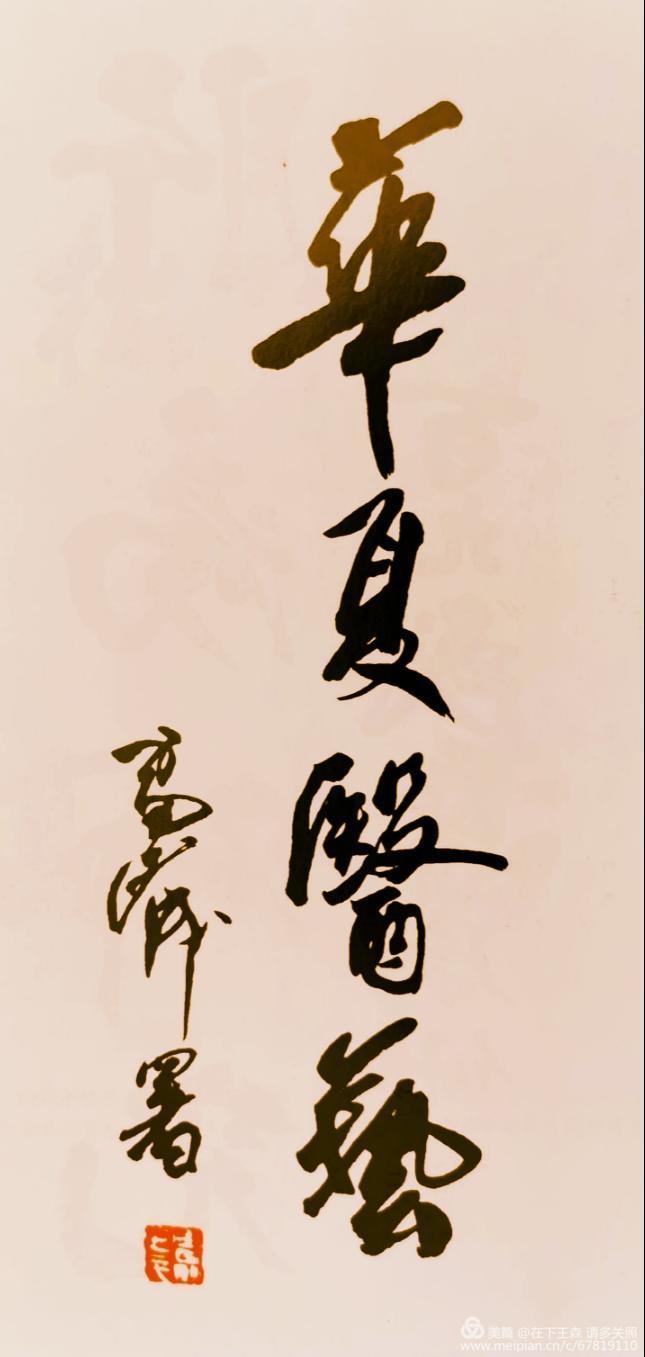 華夏醫藝
高濂署
美篇 @在下王森 请多关照
www.meipian.cn/c/67819110